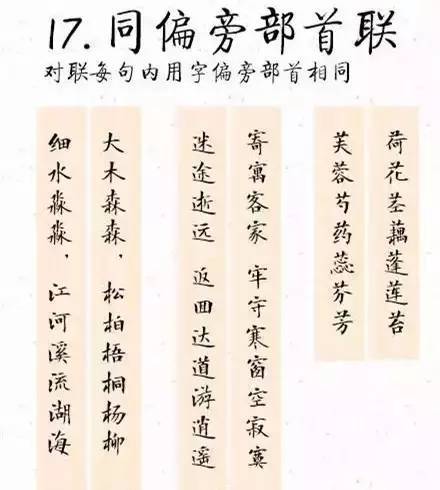 17.同偏旁部首联
对联每句内用字偏旁部首相同
荷花茎藕蓬莲苔
芙蓉芍药蕊芬芳
寄寓客家 牢守寒窗空寂寞
迷途逝远 返回达道游逍遥
大木森森，松柏梧桐杨柳
细水淼淼，江河溪流湖海